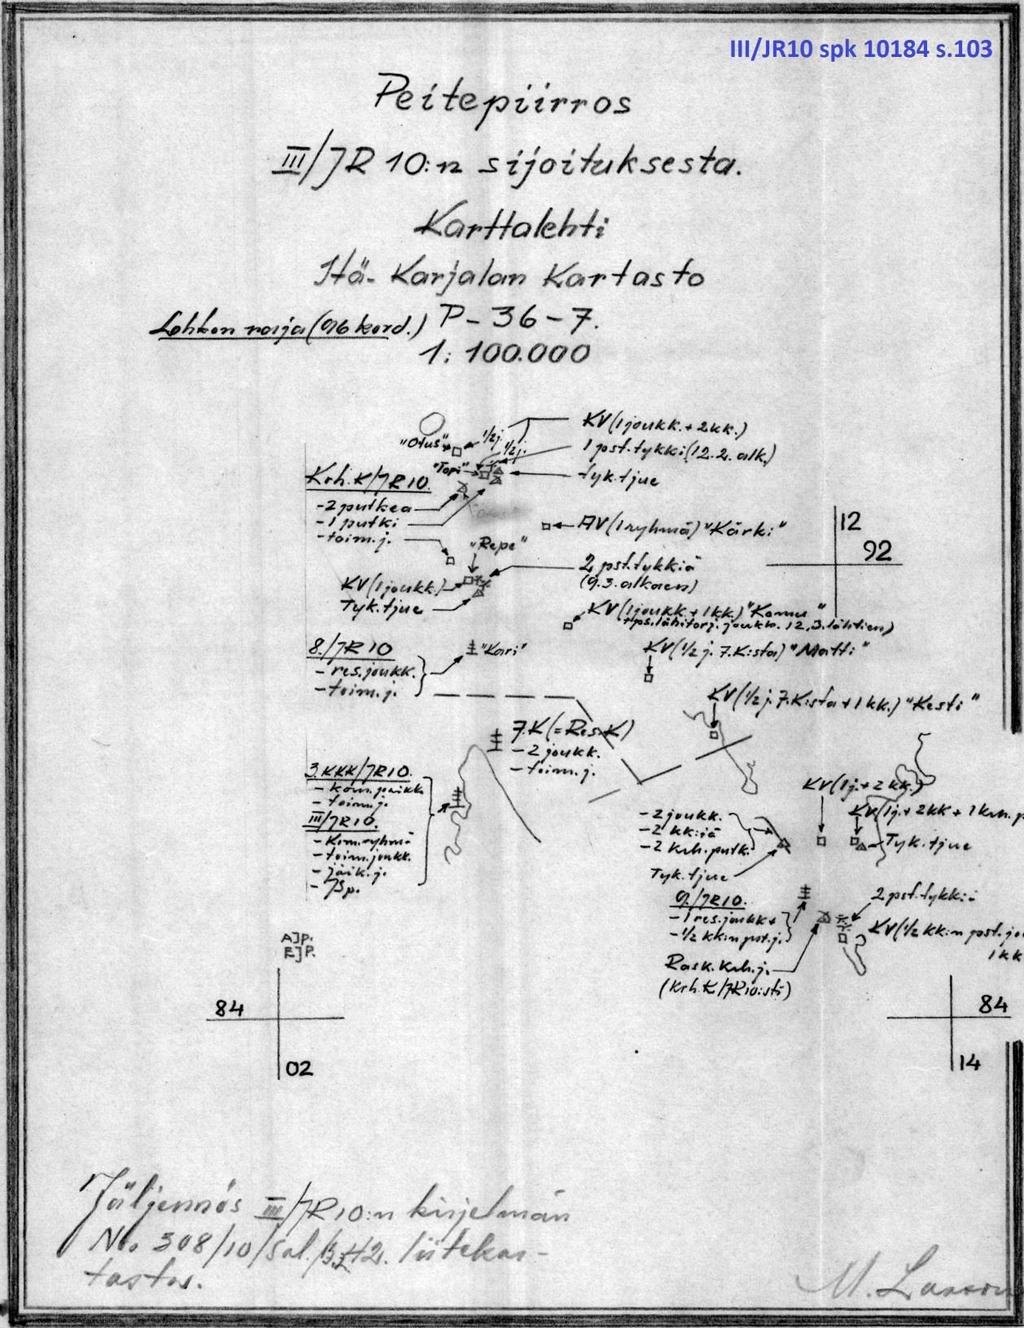 III/JR10 spk 10184 s.103
Peitepiirros
III/JR 10:n sijoituksesta.
Karttalehti
Itä-Karjalan Kartasto
Lohkon raja (96 kord.) P-36-7.
1:100.000
KV(1 joukk.+2kk.)
"Otus" ½j.
½j.
1 pst.tykki (12.2. alk.)
"Topi"
Tyk.tjue
Krh.K/JR10.
-2 putkea
-1 putki
-toim.j.
AV(1 ryhmä) "Kärki"
12
92
"Repe"
2 pst.tykkiä
(9.3. alkaen)
KV(1 joukk.)
Tyk.tjue
KV(1 joukk.+1kk.) "Konnu"
lähitorj. joukk. 12.3. lähtien)
8./JR10
-res.joukk.
-toim.j.
"Kari"
KV(½ j. 7.K:sta) "Matti"
KV(½ j. 7.K:sta+1kk.) "Kesti"
7.K(=Res.K)
-2 joukk.
-toim.j.
3.KKK/JR10.
-kom.paikka
-toim.j.
III/JR10.
-Kom.ryhmä
-toim.joukk.
-jääk.j.
-JSp.
KV(1j.+2kk.)
KV(1j.+2kk+1krh.p
Tyk.tjue
-2 joukk.
-2 kk:iä
-2 krh.putk.
Tyk.tjue
9./JR10.
-1 res.joukk+
-½ kk:n pst.j.
2 pst.tykkiä
KV(½ kk:n pst.jo
1kk
Rask.krh.j.
(Krh.K/JR10:stä)
AJP.
EJP.
84
02
84
14
Jäljennös III/JR10:n kirjelmän
No. 308/10/sal. liitekar-
tastos.
M.